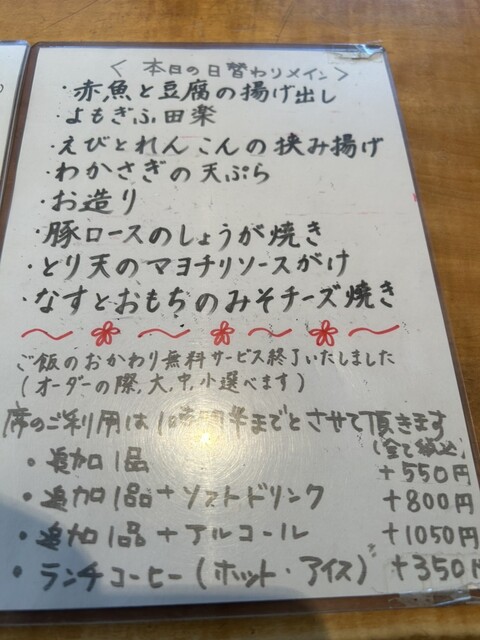 ＜本日の日替わりメイン＞
・赤魚と豆腐の揚げ出し
・よもぎふ田楽
・えびとれんこんの挟み揚げ
・わかさぎの天ぷら
・お造り
・豚ロースのしょうが焼き
・とり天のマヨチリソースがけ
・なすとおもちのみそチーズ焼き
ご飯のおかわり無料サービス終了いたしました
（オーダーの際、大、中、小選べます）
席のご利用は1時間半までとさせて頂きます
（全て税込）
・追加1品 +550円
・追加1品+ソフトドリンク +800円
・追加1品+アルコール +1050円
・ランチコーヒー（ホット・アイス） +350円